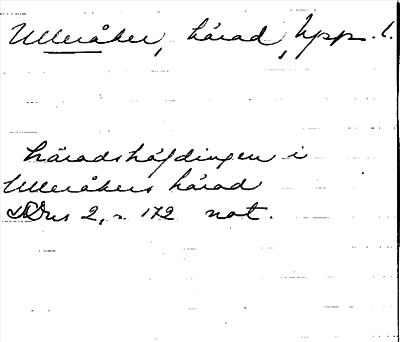 Ulleråker, härad, Upps. l.
häradshöfdingen i
Ulleråkers härad
2, s. 172 not.